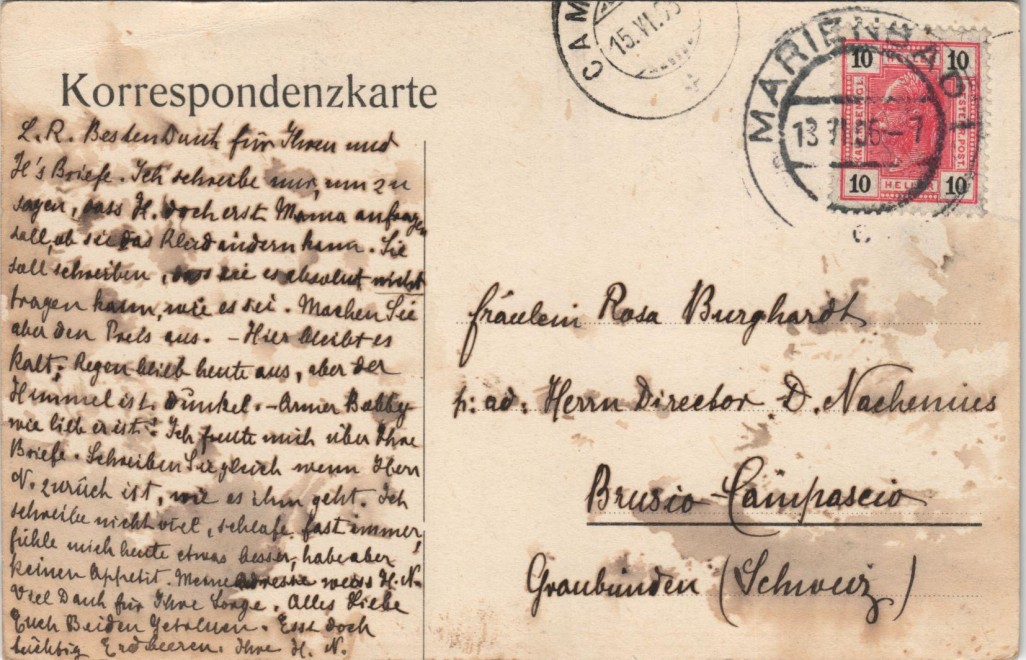 CAM
15.VI.
MARIENBAD
13 VI 06-7
10 HELLER 10
KAIS.KÖNIGL.
ÖSTERR.POST.
10 HELLER 10
Korrespondenzkarte
L. R. Besten Dank für Ihren und
H's Briefe. Ich schreibe nur, um zu
sagen, dass H. doch erst Mama anfragen
soll, ob sie das Kleid ändern kann. Sie
soll schreiben, dass sie es absolut nicht
tragen kann, wie es sei. Machen Sie
aber den Preis aus. – Hier bleibt es
kalt; Regen blieb heute aus, aber der
Himmel ist dunkel. – Armer Bobby
wie lieb er ist! Ich freute mich über Ihre
Briefe. Schreiben Sie gleich wenn Herr
N. zurück ist, wie es ihm geht. Ich
schreibe nicht viel, schlafe fast immer,
fühle mich heute etwas besser, habe aber
keinen Appetit. Meine Adresse weiss H. N.
Viel Dank für Ihre Sorge. Alles Liebe
Euch Beiden Getreuen. Esst doch
tüchtig Erdbeeren. Ihre H. N.
Fräulein Rosa Burghardt
p: ad: Herrn Director D. Nachenius
Brusio-Campascio
Graubünden (Schweiz)